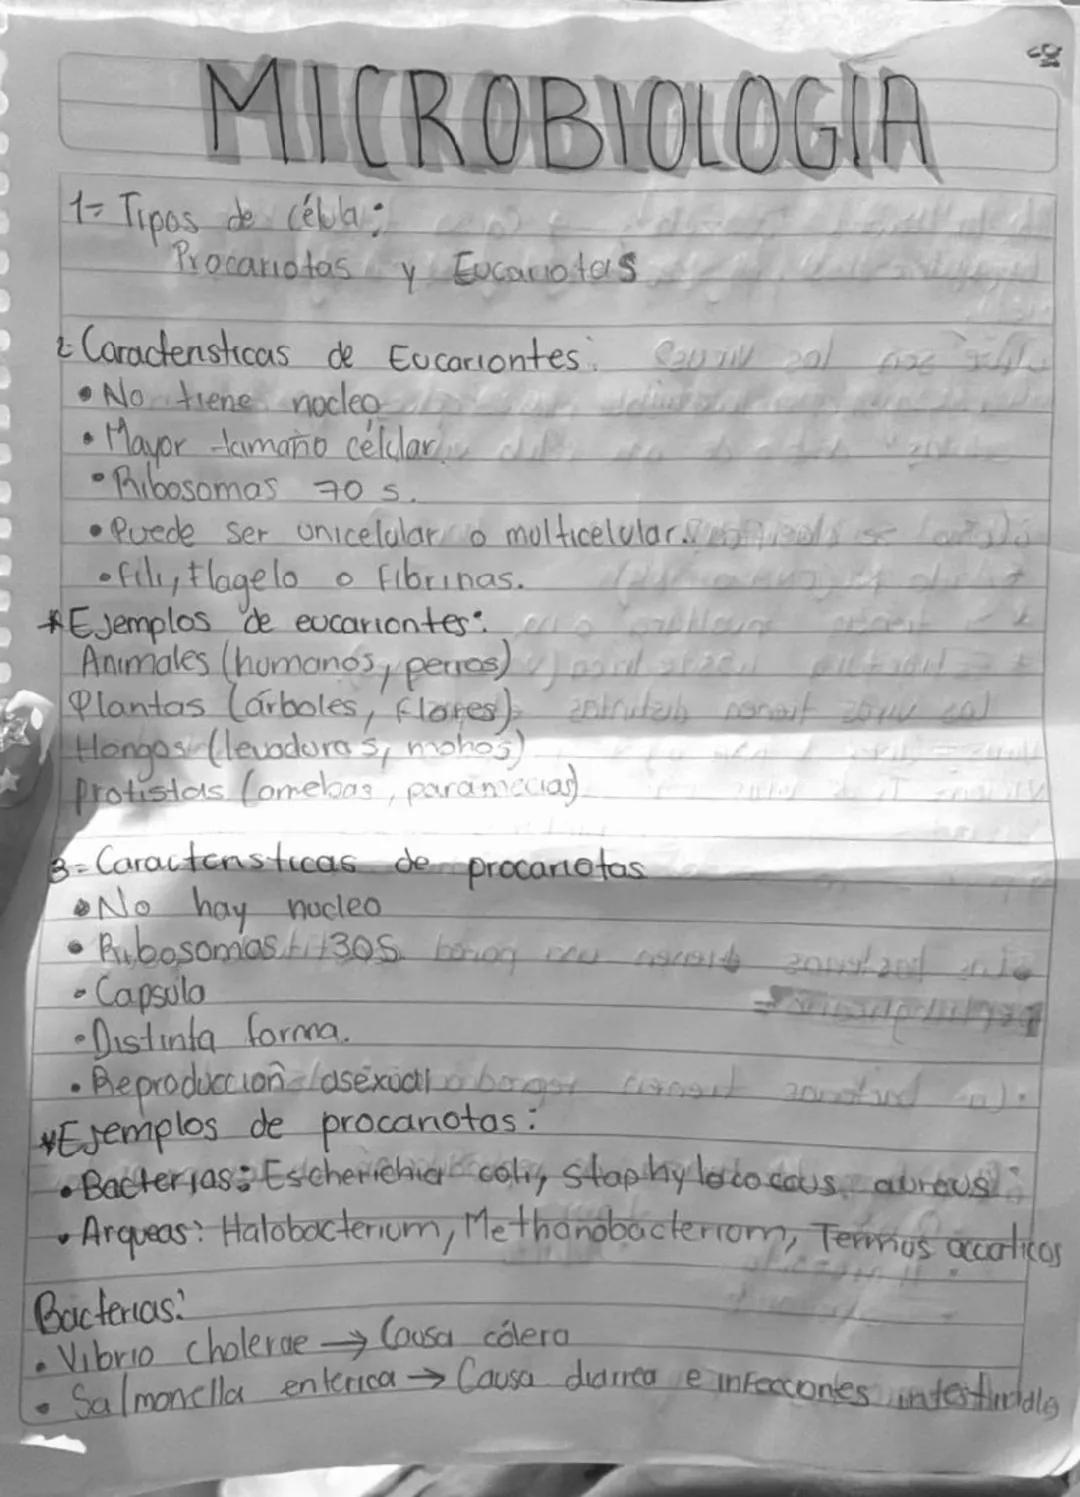 MICROBIOLOGIA
1= Tipos de célula:
Procariotas y Eucariotas
2 Caracteristicas de Eucariontes:
• No tiene nocleo
• Mayor tamaño célular
• Ribosomas 70 s.
• Puede ser unicelular o multicelular.
• fili, flagelo o fibrinas.
* Ejemplos de eucariontes:
Animales (humanos, perros)
Plantas (árboles, flores)
Hongos (levaduras, mohos)
Protistas (amebas, paramecias)
3= Caracteristicas de procariotas
• No hay nucleo
• Ribosomas 30S
• Capsula
• Distinta forma.
• Reproducción asexual
* Ejemplos de procariotas:
• Bacterias: Escherichia coli, staphylococcus aureus
• Arqueas: Halobacterium, Methanobacteriom, Termus acuaticos
Bacterias:
• Vibrio cholerae → Causa cólera
• Salmonella enterica → Causa diarrea e infecciones